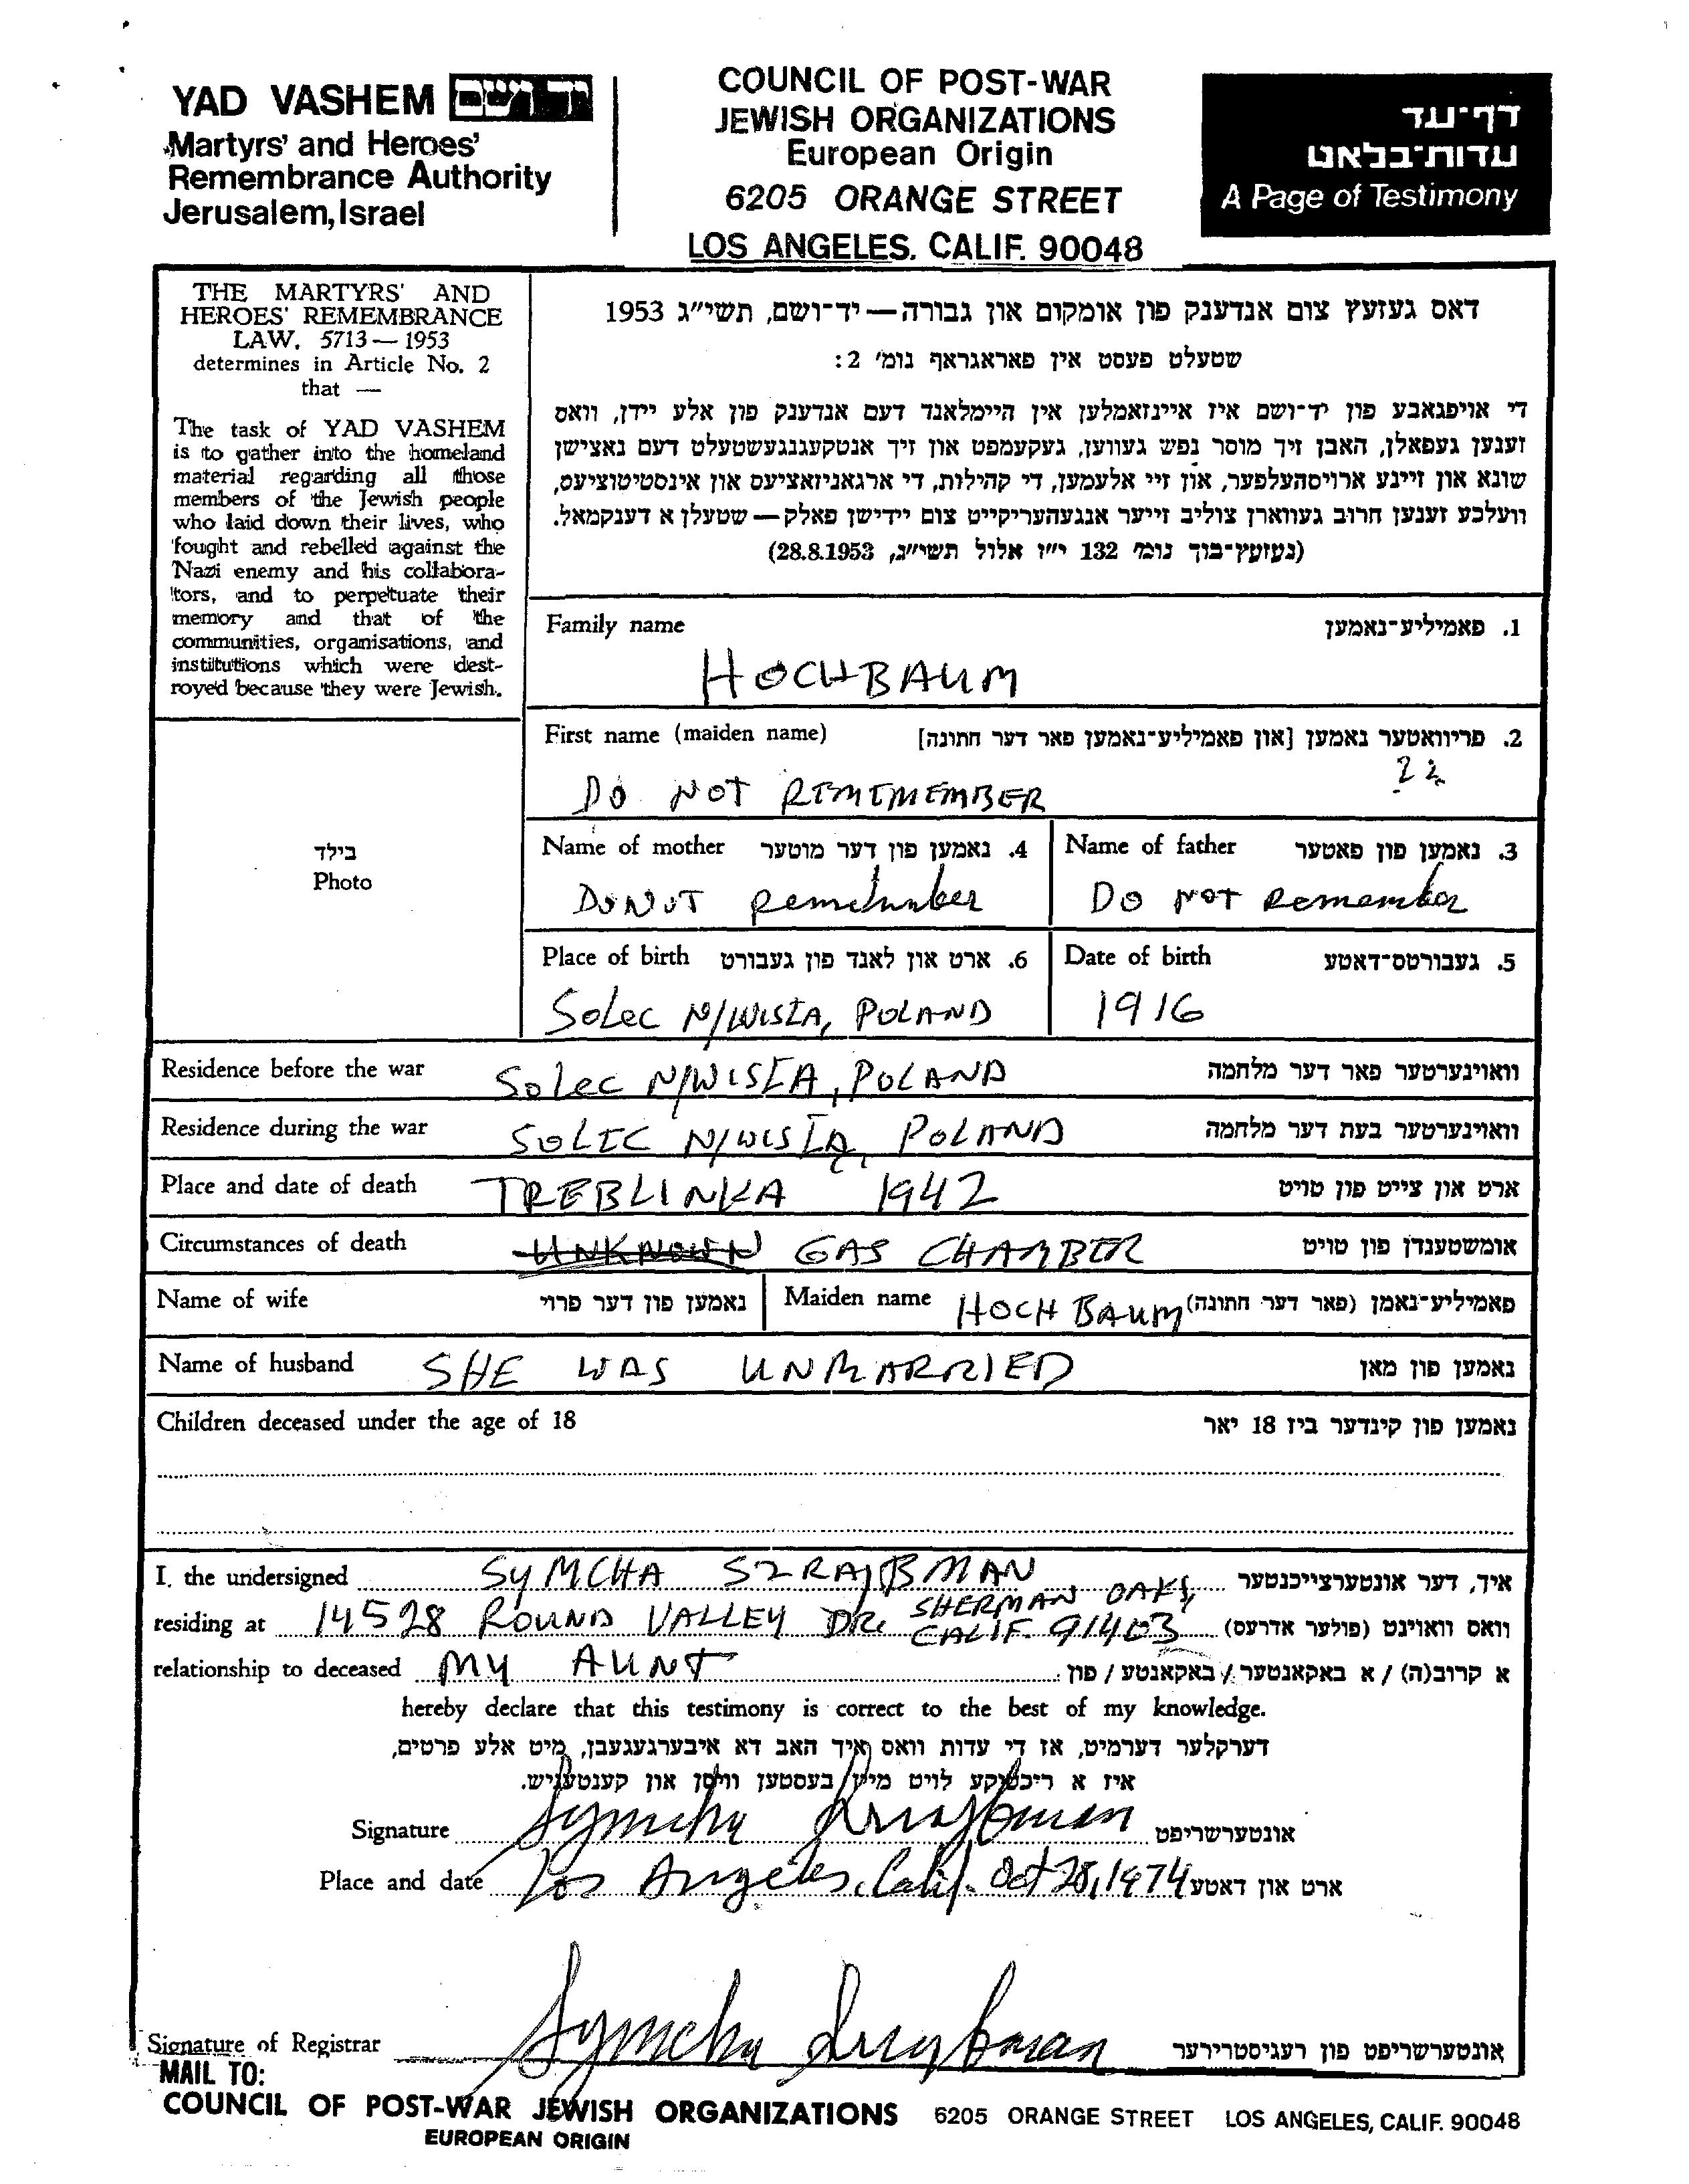 YAD VASHEM יד ושם
Martyrs' and Heroes'
Remembrance Authority
Jerusalem, Israel
COUNCIL OF POST-WAR
JEWISH ORGANIZATIONS
European Origin
6205 ORANGE STREET
LOS ANGELES, CALIF. 90048
דף־עד
עדות־בלאט
A Page of Testimony
THE MARTYRS' AND
HEROES' REMEMBRANCE
LAW, 5713 — 1953
determines in Article No. 2
that —
The task of YAD VASHEM
is to gather into the homeland
material regarding all those
members of the Jewish people
who laid down their lives, who
fought and rebelled against the
Nazi enemy and his collabora-
tors, and to perpetuate their
memory and that of the
communities, organisations, and
institutions which were dest-
royed because they were Jewish.
דאס געזעץ צום אנדענק פון אומקום און גבורה — יד־ושם, תשי״ג 1953
שטעלט פעסט אין פאראגראף נומ׳ 2:
די אויפגאבע פון יד־ושם איז איינזאמלען אין היימלאנד דעם אנדענק פון אלע יידן, וואס
זענען געפאלן, האבן זיך מוסר נפש געווען, געקעמפט און זיך אנטקעגנגעשטעלט דעם נאצישן
שונא און זיינע ארויסהעלפער, און זיי אלעמען, די קהילות, די ארגאניזאציעס און אינסטיטוציעס,
וועלכע זענען חרוב געווארן צוליב זייער אנגעהעריקייט צום יידישן פאלק — שטעלן א דענקמאל.
(געזעץ־בוך נומ׳ 132 י״ז אלול תשי״ג, 28.8.1953)
Family name 1. פאמיליע־נאמען
HOCHBAUM
First name (maiden name) 2. פריוואטער נאמען [און פאמיליע־נאמען פאר דער חתונה]
DO NOT REMEMEMBER ??
בילד
Photo
Name of mother 4. נאמען פון דער מוטער Name of father 3. נאמען פון פאטער
DO NOT Remember DO NOT Remember
Place of birth 6. ארט און לאנד פון געבורט Date of birth 5. געבורטס־דאטע
Solec N/WISŁA, POLAND 1916
Residence before the war Solec N/WISŁA, POLAND וואוינערטער פאר דער מלחמה
Residence during the war SOLEC N/WISŁA, POLAND וואוינערטער בעת דער מלחמה
Place and date of death TREBLINKA 1942 ארט און צייט פון טויט
Circumstances of death UNKNOWN GAS CHAMBER אומשטענדן פון טויט
Name of wife נאמען פון דער פרוי Maiden name HOCHBAUM פאמיליע־נאמן (פאר דער חתונה)
Name of husband SHE WAS UNMARRIED נאמען פון מאן
Children deceased under the age of 18 נאמען פון קינדער ביז 18 יאר
I, the undersigned SYMCHA SZRAJBMAN איך, דער אונטערצייכנטער
residing at 14528 ROUND VALLEY DR. SHERMAN OAKS, CALIF. 91403 וואס וואוינט (פולער אדרעס)
relationship to deceased MY AUNT א קרוב(ה) / א באקאנטער / באקאנטע / פון:
hereby declare that this testimony is correct to the best of my knowledge.
דערקלער דערמיט, אז די עדות וואס איך האב דא איבערגעגעבן, מיט אלע פרטים,
איז א ריכטיקע לויט מיין בעסטען וויסן און קענטעניש.
Signature Symcha Szrajbman אונטערשריפט
Place and date Los Angeles, Calif. Oct 28, 1974 ארט און דאטע
Signature of Registrar Symcha Szrajbman אונטערשריפט פון רעגיסטרירער
MAIL TO:
COUNCIL OF POST-WAR JEWISH ORGANIZATIONS 6205 ORANGE STREET LOS ANGELES, CALIF. 90048
EUROPEAN ORIGIN